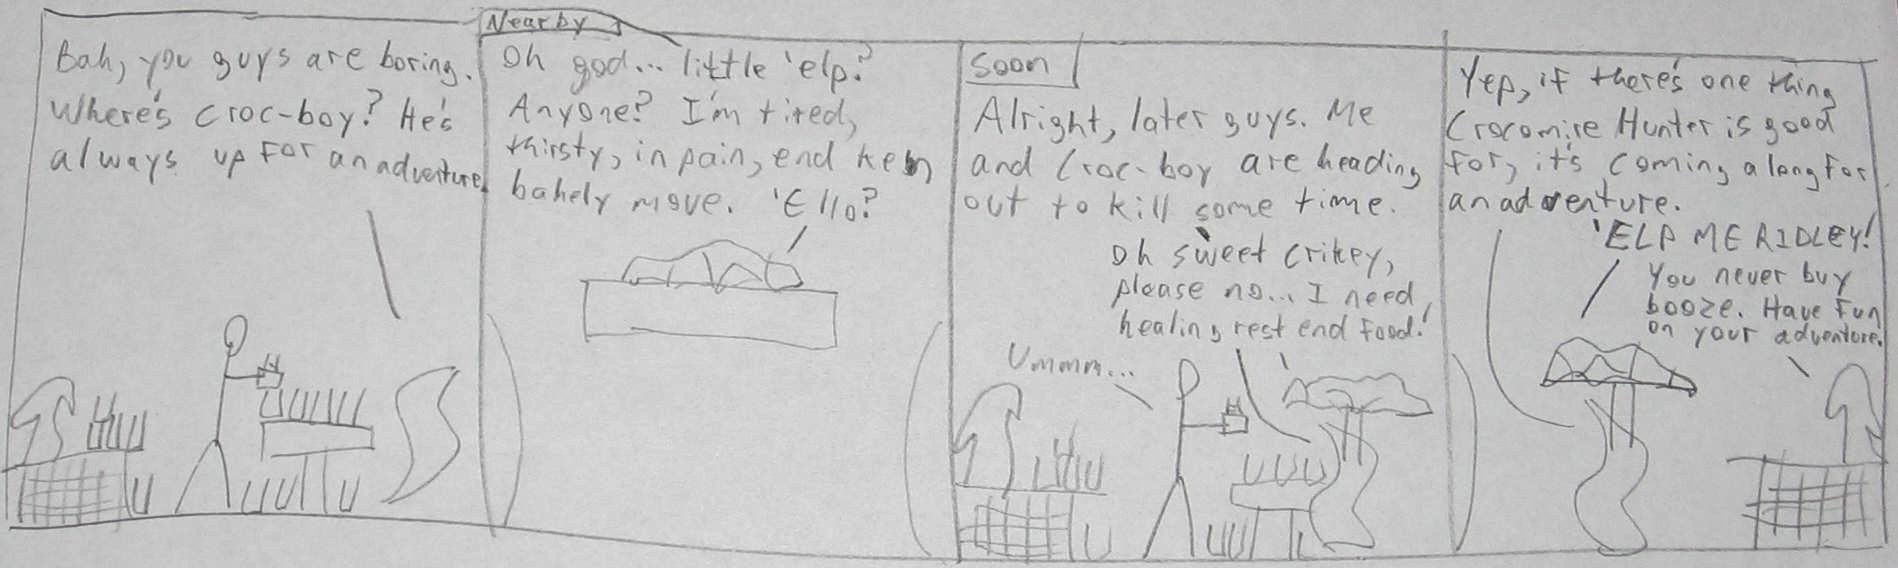 Bah, you guys are boring.
Where's croc-boy? He's
always up for an adventure.
Nearby
Oh god... little 'elp?
Anyone? I'm tired,
thirsty, in pain, end ken
bahely move. 'Ello?
Soon
Alright, later guys. Me
and Croc-boy are heading
out to kill some time.
Oh sweet crikey,
please no... I need
healing rest end food!
Ummm...
Yep, if there's one thing
Crocomire Hunter is good
for, it's coming along for
an adventure.
'ELP ME RIDLEY!
You never buy
booze. Have fun
on your adventure.